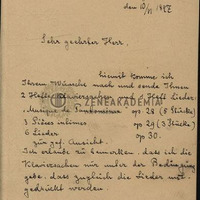 den 10/VI 1897
Sehr geehrter Herr.
hiemit komme ich
Ihrem Wunsche nach und sende Ihnen
2 Hefte Klavierstücke 1 Heft Lieder.
ZENEAKADÉMIA
Musique de op 28 (8 Stücke)
3 Pièces intimes op 29 (3 Stücke)
6 Lieder op 30.
zur gef. Ansicht.
Ich erlaube mir zu bemerken, dass ich die
Klaviersachen nur unter der Bedingung
gebe, dass zugleich die Lieder mit-
gedruckt werden.